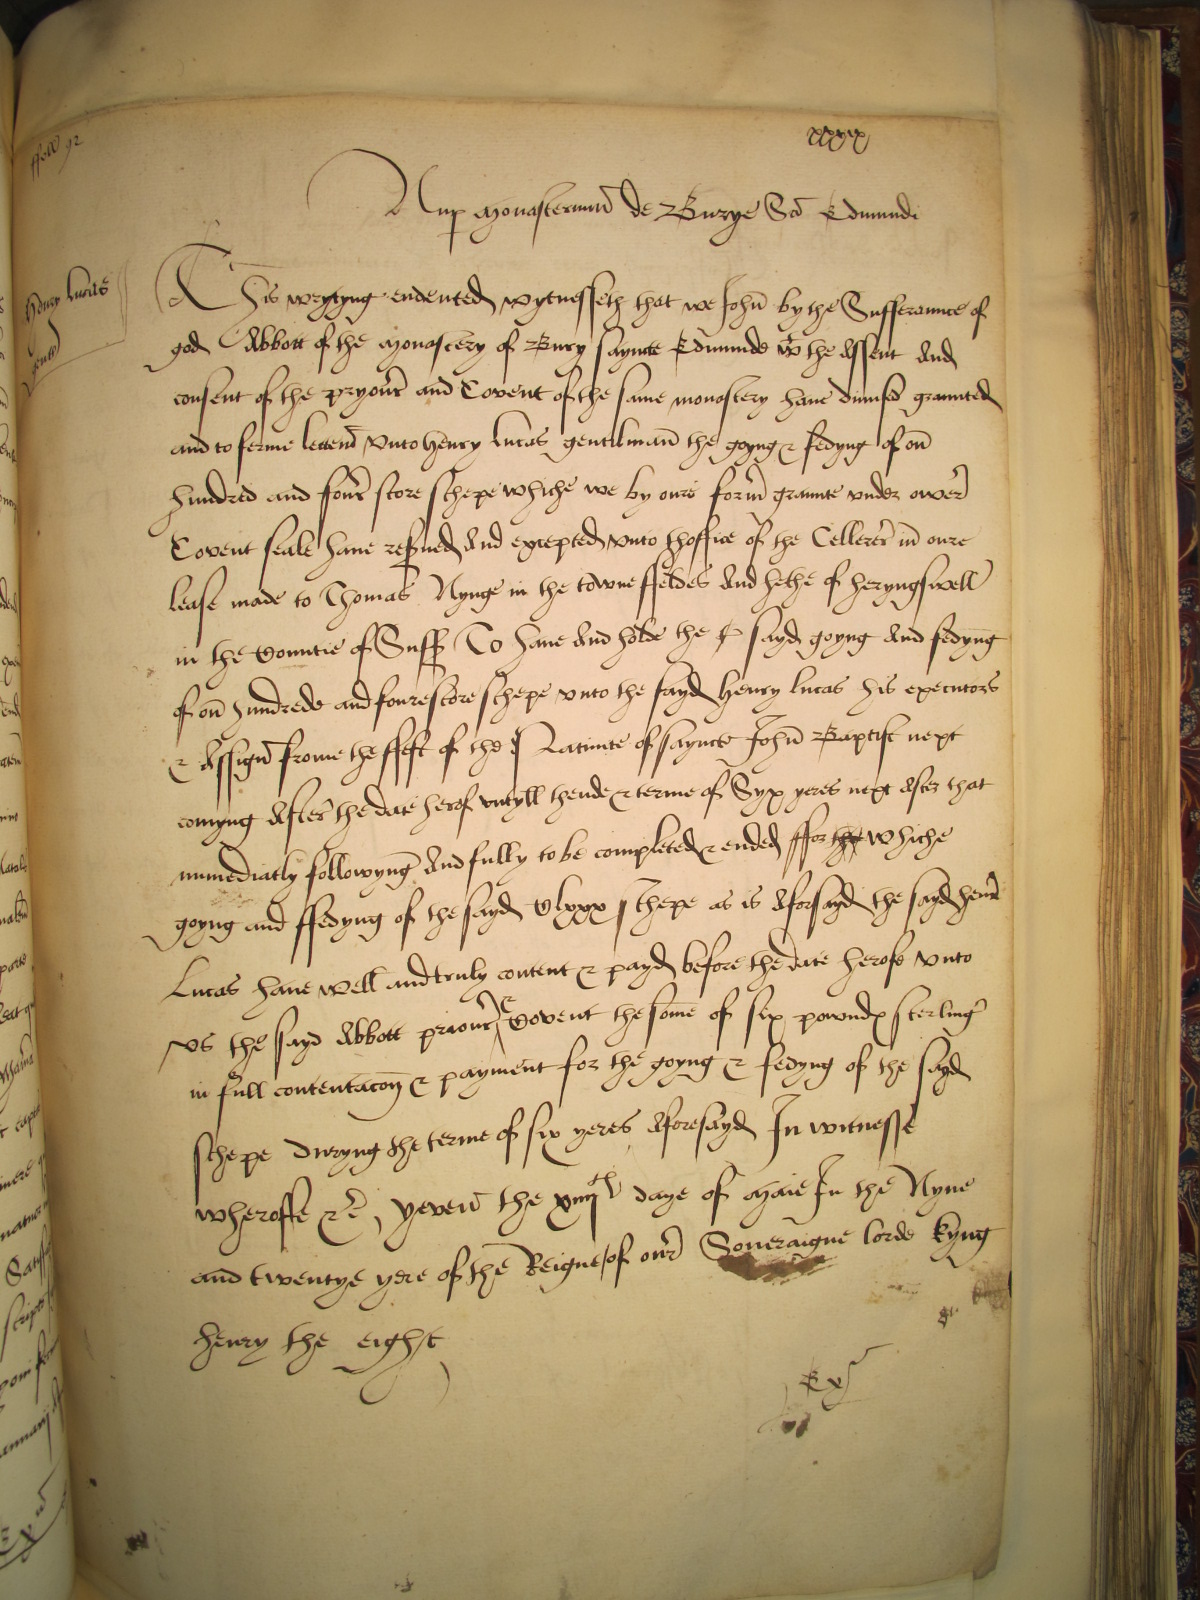 xxxx
ffoll 92
Nup Monasterium de Burye Sci Edmundi
Henry lucas
gent
This wrytyng endented wytnesseth that we John by the Sufferaunce of
god Abbott of the Monastery of Bury saynte Edmunde wt the Assent And
consent of the pryour and Covent of the same monastery have dimised graunted
and to ferme letten unto henry lucas gentilman the goyng & fedyng of on
hundred and four score schepe whiche we by oure form graunte under ower
Covent seale have resrued And excepted unto thoffice of the Cellerer in oure
lease made to Thomas Nynge in the towne ffeldes And hethe of heryngswell
in the Countie of Suff To have And holde the sayd goyng And fedyng
of on hundrede and fourescore schepe unto the sayd Henry lucas his executors
& Assign frome the ffest of the Natiuite of saynte John Baptist next
comyng After the date herof untyll thende & terme of Syx yeres next After that
immediatly followyng And fully to be completed & ended ffor the whiche
goyng and ffedyng of the sayd Clxxx schepe as is Aforsayd the sayd henr
Lucas have well and truly content & payd before the date herof unto
us the sayd Abbott priour & Covent the some of six powndx sterling
in full contentacon & payment for the goyng & fedyng of the sayd
schepe duryng the terme of six yeres Aforesayd In witnesse
wheroffe &c yeven the xiiijth daye of Maie In the Nyne
and twentye yere of the Reigne of our Soueraigne lorde kyng
henry the eight
Ex